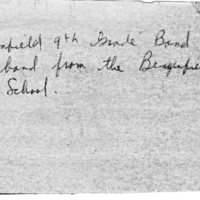 nfield 9th Grade Band
band from the Bergenfie
School.